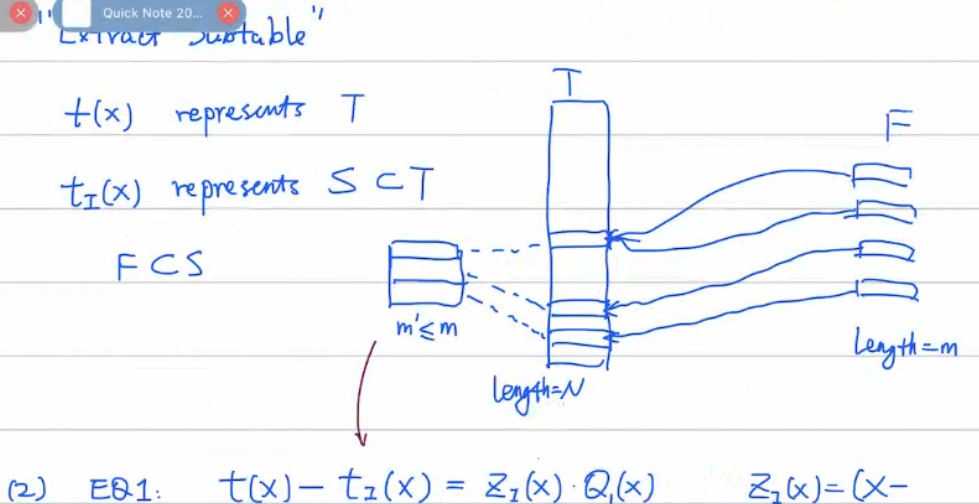 Quick Note 20...
"Extract Subtable"
T
t(x) represents T
F
t_I(x) represents S ⊂ T
F ⊂ S
m' ≤ m
Length = m
Length = N
(2) EQ1: t(x) - t_I(x) = Z_I(x) · Q_1(x) Z_I(x) = (X-